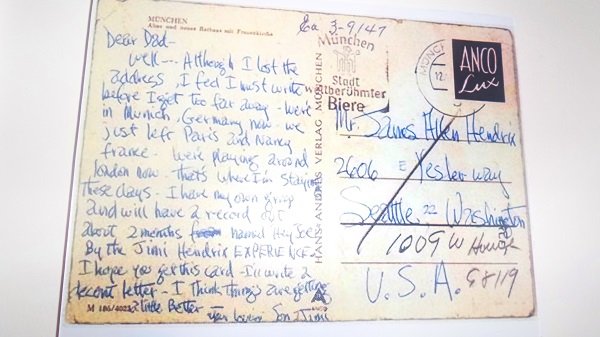 MÜNCHEN
Altes und neues Rathaus mit Frauenkirche
Dear Dad-
Well --- Although I lost the
address, I feel I must write
before I get too far away - We're
in Munich, Germany now - we
just left Paris and Nancy
france - We're playing around
london now - that's where I'm staying
These days - I have my own group
and will have a record out
about 2 months named Hey Joe
By the Jimi Hendrix EXPERIENCE -
I hope you get this card - I'll write a
decent letter - I think things are getting
a little Better -
your loving Son Jimi
M 186/
HANS ANDRES VERLAG MÜNCHEN
3-9147
München
Stadt
weltberühmter
Biere
MÜNCH
12.
ANCO
Lux
Mr. James Allen Hendrix
2606 E Yesler Way
Seattle 22 Washington
1009 W
U.S.A.
98119